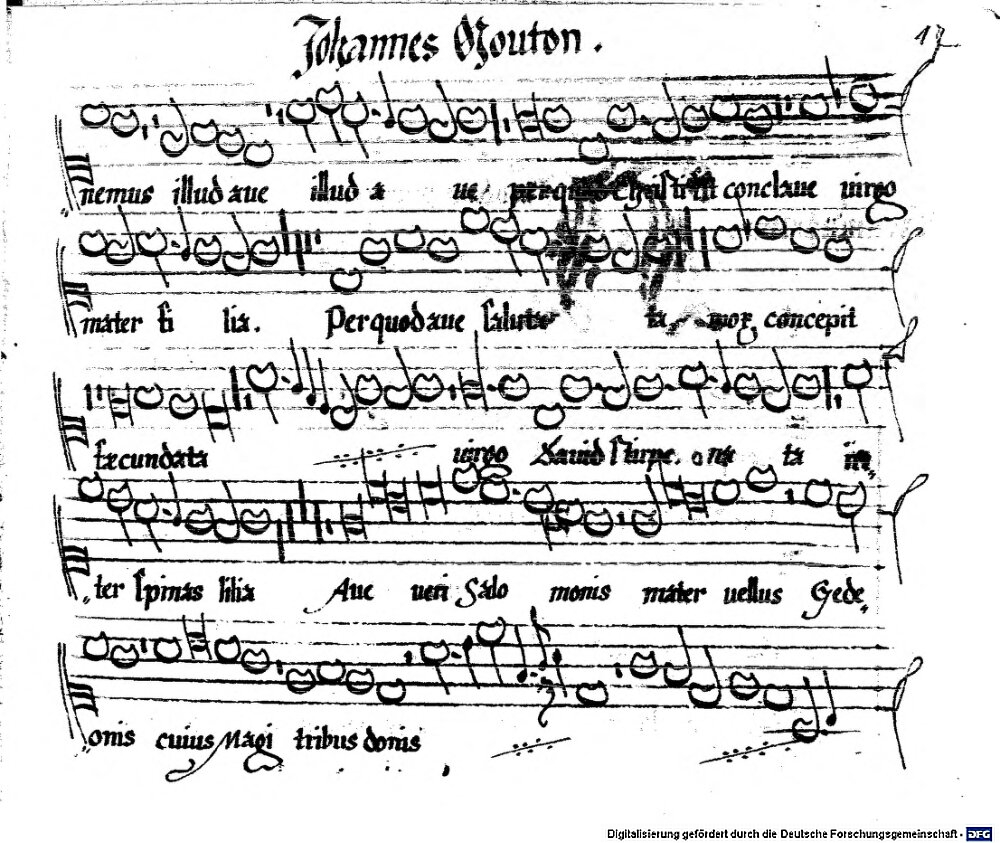 Johannes Mouton .
17
nemus illud aue illud a ue perquod Christi fit conclaue uirgo
mater fi lia. Per quod aue saluta ta mox concepit
fæcundata uirgo Dauid stirpe. na ta in„
„ter spinas lilia Aue ueri Salo monis mater uellus Gede„
„onis cuius Magi tribus donis
Digitalisierung gefördert durch die Deutsche Forschungsgemeinschaft - DFG